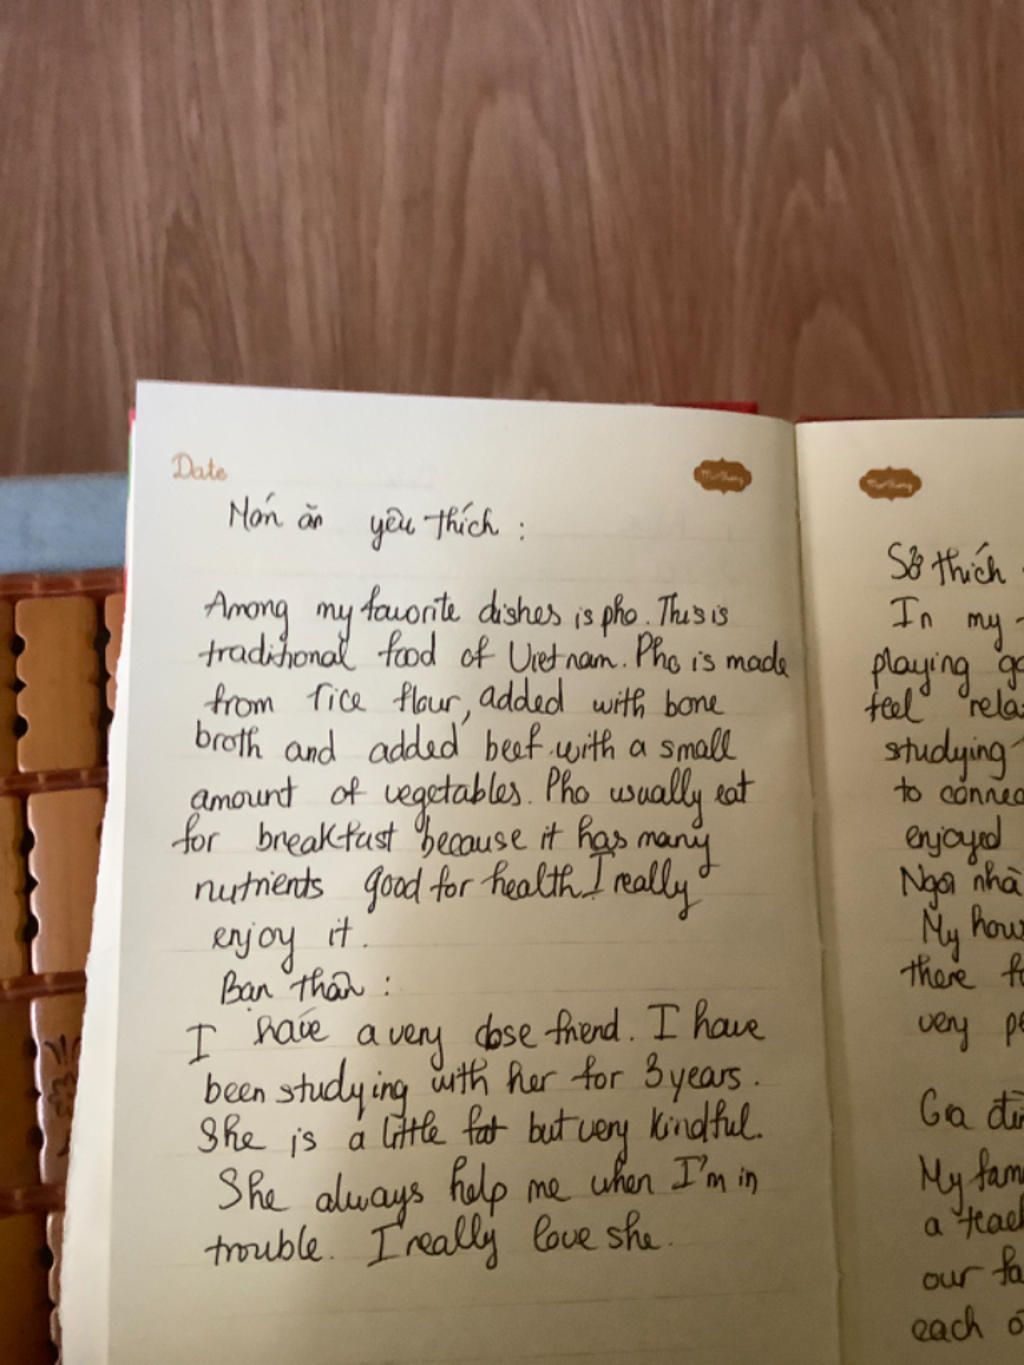 Date
Món ăn yêu thích :
Among my favorite dishes is pho. This is
traditional food of Viet nam. Pho is made
from rice flour, added with bone
broth and added beef with a small
amount of vegetables. Pho usually eat
for breakfast because it has many
nutrients good for health. I really
enjoy it.
Bạn thân :
I have a very close friend. I have
been studying with her for 3 years.
She is a little fat but very kindful.
She always help me when I'm in
trouble. I really love she.
Sở thích
In my
playing
feel
studying
to
enjoyed
Ngôi nhà
My
there
very
Gia
My
a
our
each